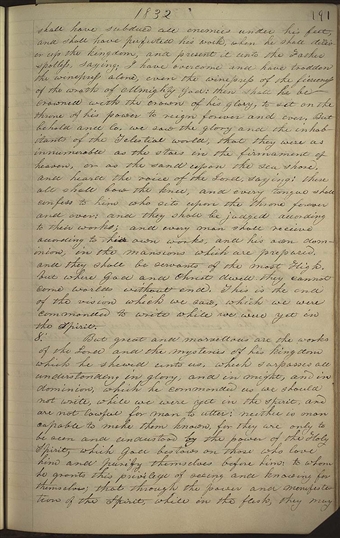 1832
191
shall have subdued all enemies under his feet,
and shall have perfected his work, when he shall deliver
up the kingdom, and present it unto the Father
spotless, saying; I have overcome and have trodden
the winepress alone, even the winepress of the fierceness
of the wrath of almighty God: then shall he be
crowned with the crown of his glory, to set on the
throne of his power to reign forever and ever. But
behold and lo, we saw the glory and the inhab-
itants of the Telestial world, that they were as
innumerable as the stars in the firmament of
heaven, or as the sand upon the sea shore,
and heard the voice of the Lord, saying: these
all shall bow the knee, and every tongue shall
confess to him who sits upon the throne forever
and ever: and they shall be judged according
to their works; and every man shall receive
according to his own works, and his own dom-
inion, in the mansions which are prepared,
and they shall be servants of the most High,
but where God and Christ dwell they cannot
come worlds without end. This is the end
of the vision which we saw, which we were
commanded to write while we were yet in
the Spirit.
8. But great and marvellous are the works
of the Lord and the mysteries of his kingdom
which he showed unto us, which surpasses all
understanding in glory, and in might, and in
dominion, which he commanded us we should
not write, while we were yet in the spirit, and
are not lawful for man to utter: neither is man
capable to make them known, for they are only to
be seen and understood by the power of the Holy
Spirit, which God bestows on those who love
him and purify themselves before him: to whom
he grants this privilege of seeing and knowing for
themselves; that through the power and manifesta-
tion of the Spirit, while in the flesh, they may